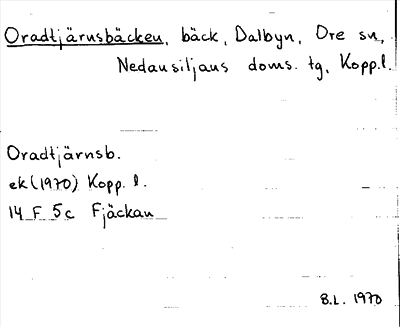 Oradtjärnsbäcken, bäck, Dalbyn, Ore sn,
Nedansiljans doms. tg, Kopp.l.
Oradtjärnsb.
ek (1970) Kopp. l.
14 F 5c Fjäckan
B.L. 1970